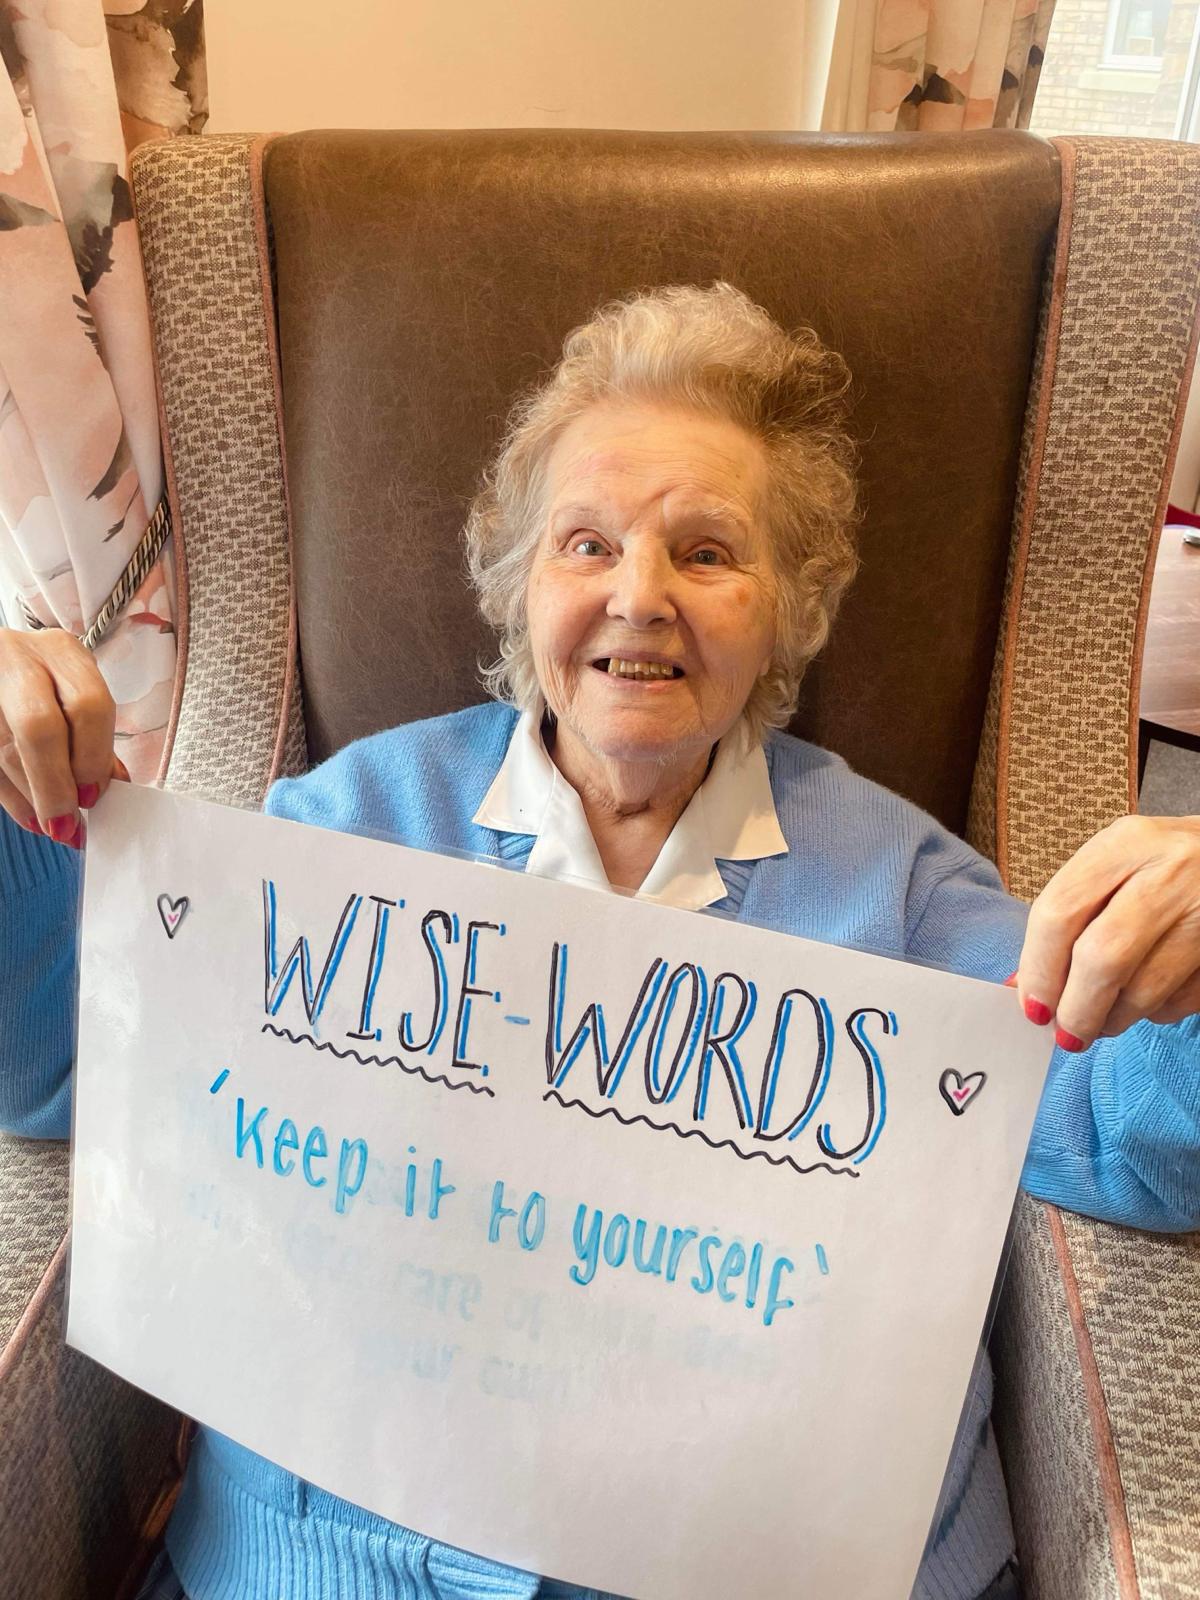 WISE-WORDS
'Keep it to yourself'
care of